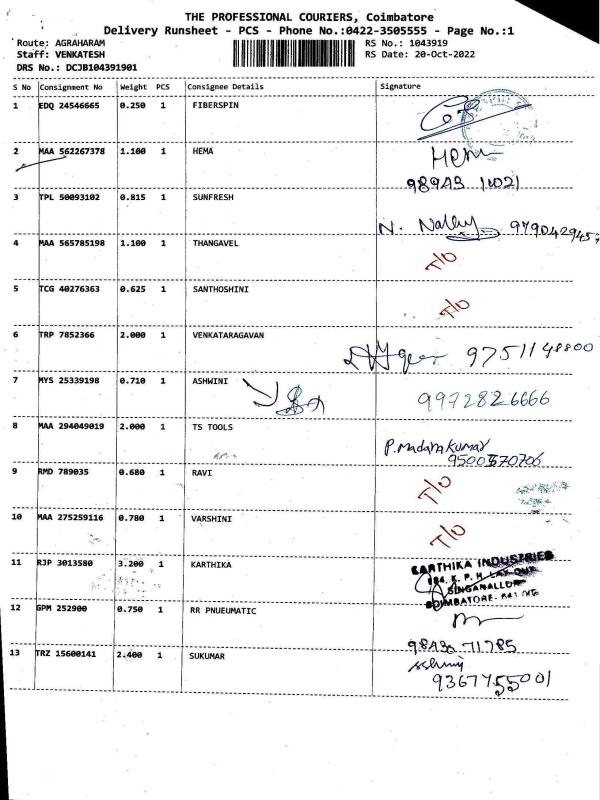 THE PROFESSIONAL COURIERS, Coimbatore
Delivery Runsheet - PCS - Phone No.:0422-3505555 - Page No.:1
Route: AGRAHARAM RS No.: 1043919
Staff: VENKATESH RS Date: 20-Oct-2022
DRS No.: DCJB104391901
S No Consignment No Weight PCS Consignee Details Signature
1 EDQ 24546665 0.250 1 FIBERSPIN
2 MAA 562267378 1.100 1 HEMA Hema
98943 10021
3 TPL 50093102 0.815 1 SUNFRESH
N. 9790429457
4 MAA 565785198 1.100 1 THANGAVEL T/O
5 TCG 40276363 0.625 1 SANTHOSHINI T/O
6 TRP 7852366 2.000 1 VENKATARAGAVAN 9751148800
7 MYS 25339198 0.710 1 ASHWINI 9972826666
8 MAA 294049019 2.000 1 TS TOOLS P.Madanakumar
9500570706
9 RMD 789035 0.680 1 RAVI T/O
10 MAA 275259116 0.780 1 VARSHINI T/O
11 RJP 3013580 3.200 1 KARTHIKA KARTHIKA INDUSTRIES
K. P. H. LAY-OUT
SINGANALLUR
COIMBATORE-
12 GPM 252900 0.750 1 RR PNUEUMATIC
98430 71785
13 TRZ 15600141 2.400 1 SUKUMAR
9367755001